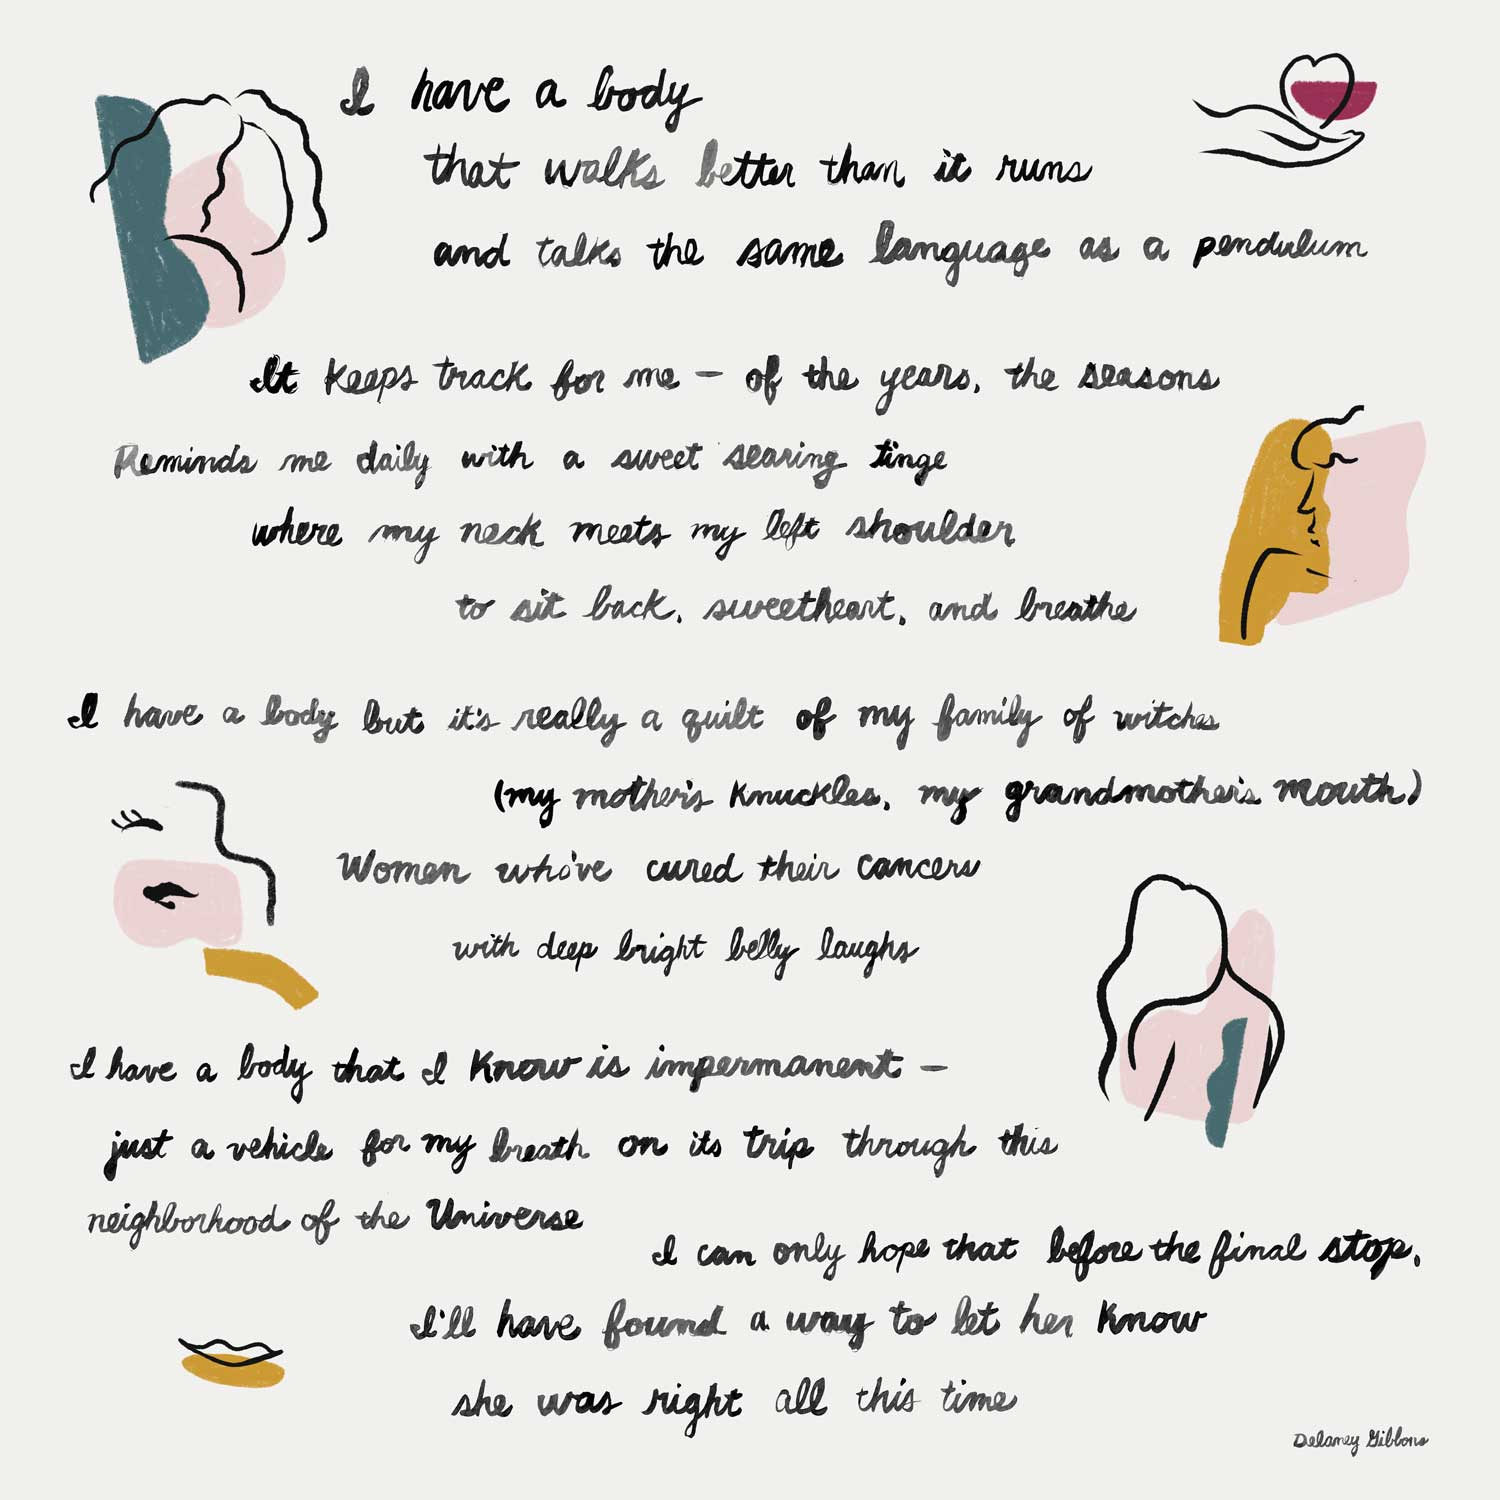 I have a body
that walks better than it runs
and talks the same language as a pendulum
It keeps track for me – of the years, the seasons
Reminds me daily with a sweet searing tinge
where my neck meets my left shoulder
to sit back, sweetheart, and breathe
I have a body but it's really a quilt of my family of witches
(my mother's knuckles, my grandmother's mouth)
Women who've cured their cancers
with deep bright belly laughs
I have a body that I know is impermanent –
just a vehicle for my breath on its trip through this
neighborhood of the Universe
I can only hope that before the final stop,
I'll have found a way to let her know
she was right all this time
Delaney Gibbons